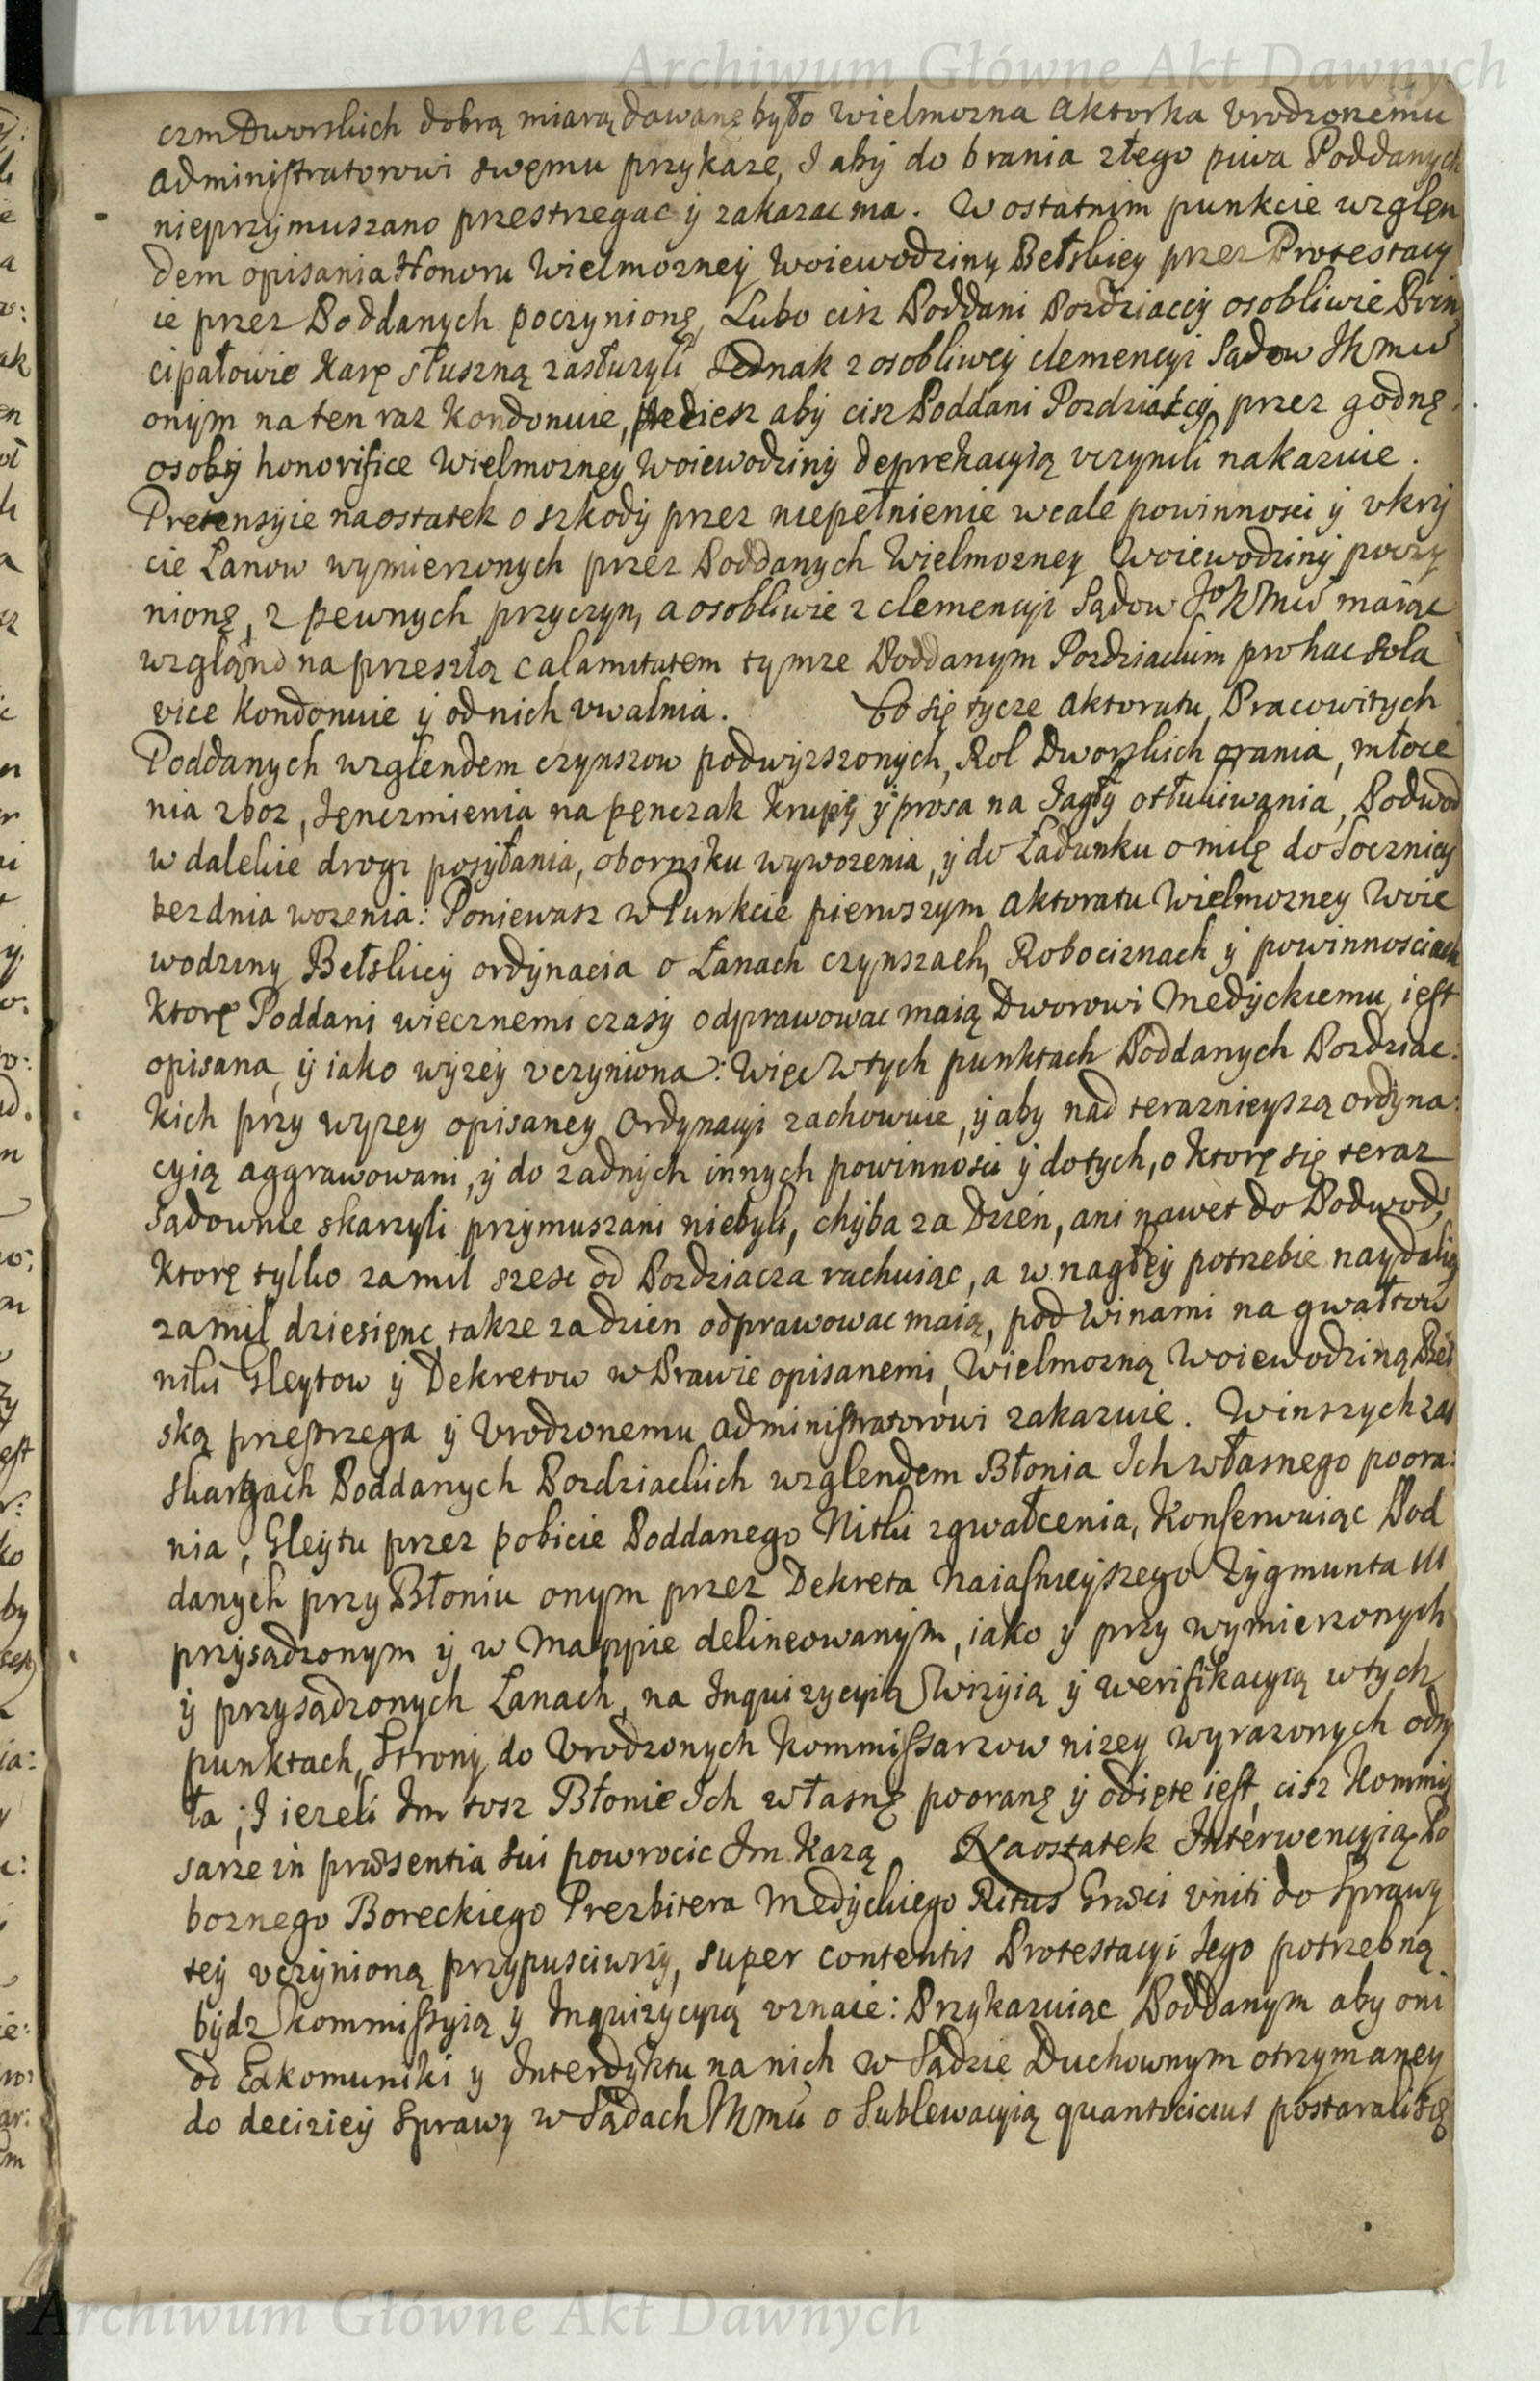 Archiwum Główne Akt Dawnych
czm Dworskich dobrą miarą dawanę było Wielmozna Aktorka Vrodzonemu
Administratorowi swęmu przykaze, I aby do brania złego piwa Poddanych
nieprzymuszano przestrzegac y zakazac ma. W ostatnim punkcie wzglęn
dem opisania Honoru Wielmozney Woiewodziny Bełskiey przez Protestacy
ie przez Poddanych poczynionę, Lubo cisz Poddani Pozdziaccy osobliwie Prin
cipałowie Karę słuszną zasłuzyli, Iednak z osobliwey clemencyi Sądow JKmci
onym na ten raz Kondonuie, aby cisz Poddani Pozdziaccy przez godnę
osoby honorifice Wielmozney Woiewodziny deprekacyią vczynili nakazuie.
Pretensyie naostatek o szkody przez niepełnienie wcale powinnosci y vkry
cie Lanow wymierzonych przez Poddanych Wielmozney Woiewodziny poczy
nionę, z pewnych przyczyn, a osobliwie z clemencyi Sądow JoKMci maiąc
wzgląnd na przeszłą calamitatem tymze Poddanym Pozdziackim pro hac sola
vice Kondonuie y od nich vwalnia. Co się tycze Aktoratu Pracowitych
Poddanych wzglendem czynszow podwyzszonych, Rol Dworskich orania, młoce
nia zboz, Ięnczmienia na pęnczak krupę y prosa na Iagły otłukiwania, Podwod
w dalekie drogi posyłania, oborniku wywozenia, y do Ładunku o milę do Socznicy
bez dnia wozenia: Poniewasz w Punkcie pierwszym Aktoratu Wielmozney Woie
wodziny Bełskiey ordynacia o Łanach czynszach, Robociznach y powinnosciach
Ktorę Poddani wiecznemi czasy odprawowac maią Dworowi Medyckiemu, iest
opisana, y iako wyzey vczyniona: Więc w tych punktach Poddanych Pozdziac:
kich przy wyzey opisaney Ordynacyi zachowuie, y aby nad teraznieyszą ordyna:
cyią aggrawowani, y do zadnych innych powinnosci y do tych, o ktorę się teraz
Sądownie skarzyli przymuszani niebyli, chyba za Dzień, ani nawet do Podwod,
Ktorę tylko za mil szesc od Pozdziacza rachuiąc, a w nagłey potrzebie naydaliy
za mil dziesięnc, takze za dzien odprawowac maią, pod winami na gwałtow
niki Gleytow y Dekretow w Prawie opisanemi, Wielmozną Woiewodziną Beł
ską przestrzega y Vrodzonemu Administratorowi zakazuie. W inszych zas
skargach Poddanych Pozdziackich wzglendem Błonia Ich własnego poora:
nia, Gleytu przez pobicie Poddanego Nitki zgwałcenia, Konserwuiąc Pod
danych przy Błoniu onym przez Dekreta Naiasnieyszego Zygmunta III
przysądzonym y w Mappie delineowanym, iako y przy wymierzonych
y przysądzonych Łanach, na Inquizycyią wizyią y werifikacyią w tych
punktach, Strony do Vrodzonych Kommissarzow nizey wyrazonych odsy
ła; I iezeli Im tosz Błonie Ich własnę pooranę y odięte iest, cisz Kommis
sarze in præsentia sui powrocic Im Kazą. Naostatek Interwencyią Po
boznego Boreckiego Prezbitera Medyckiego Ritus Græci Vniti do Sprawy
tey vczynioną przypusciwszy, super contentis Protestacyi Iego potrzebną
bydz kommissyią y Inquizycyią vznaie: Przykazuiąc Poddanym aby oni
od Exkomuniki y Interdyktu na nich w Sądzie Duchownym otrzymaney
do deciziey Sprawy w Sądach JKmci o Sublewacyią quantocicius postarali się
Archiwum Główne Akt Dawnych